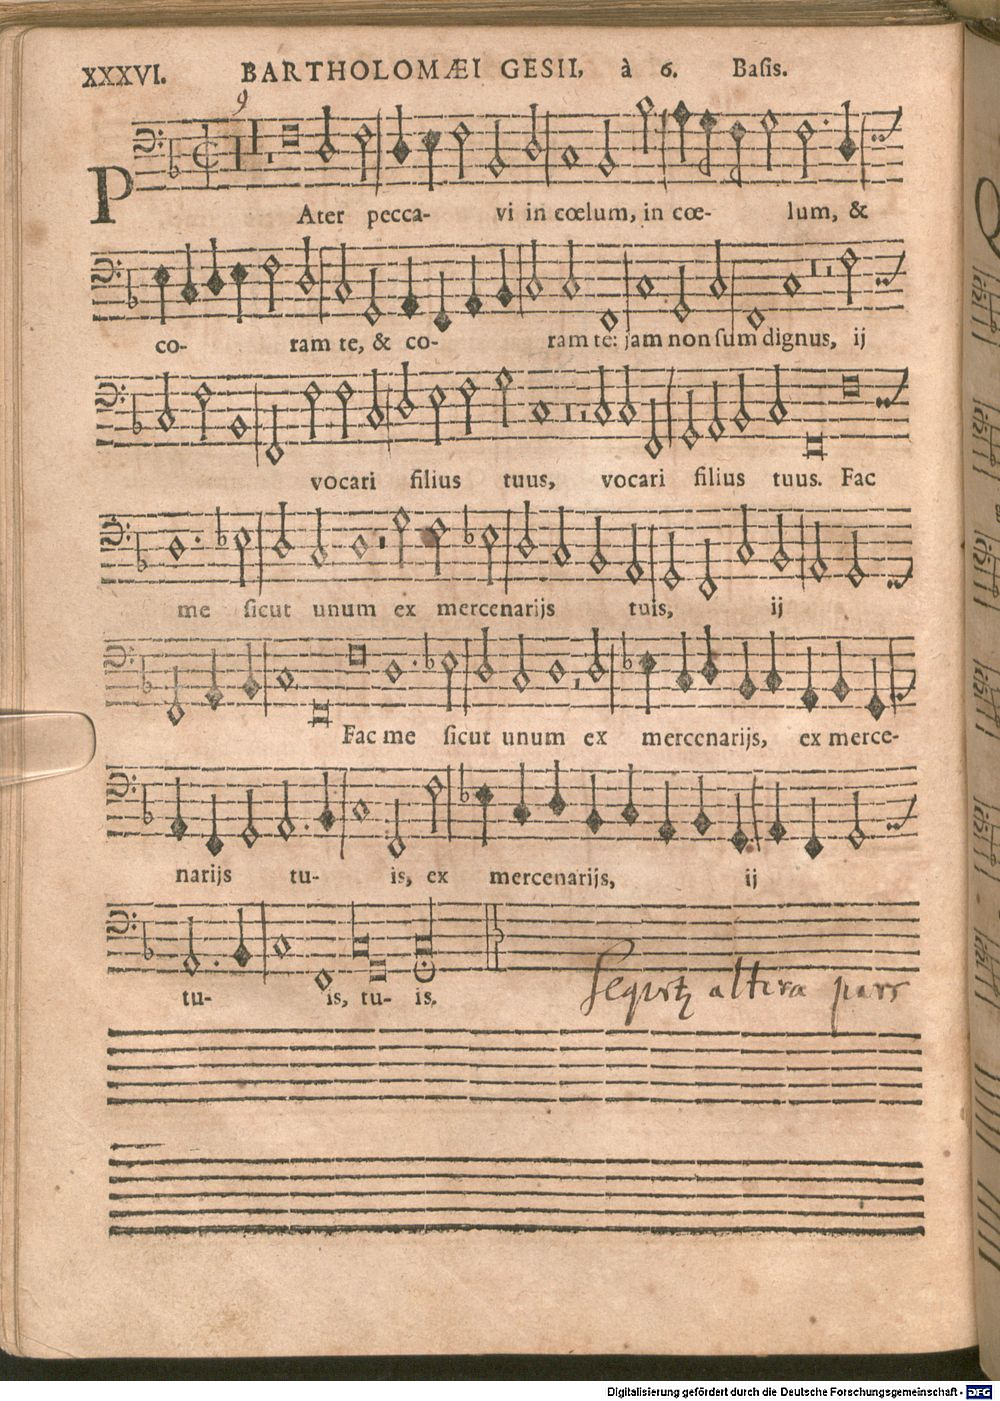 XXXVI. BARTHOLOMÆI GESII, à 6. Basis.
9
PAter pecca- vi in cœlum, in cœ- lum, &
co- ram te, & co- ram te: jam non sum dignus, ij
vocari filius tuus, vocari filius tuus. Fac
me sicut unum ex mercenarijs tuis, ij
Fac me sicut unum ex mercenarijs, ex merce-
narijs tu- is, ex mercenarijs, ij
tu- is, tu- is.
altera pars
Digitalisierung gefördert durch die Deutsche Forschungsgemeinschaft - DFG